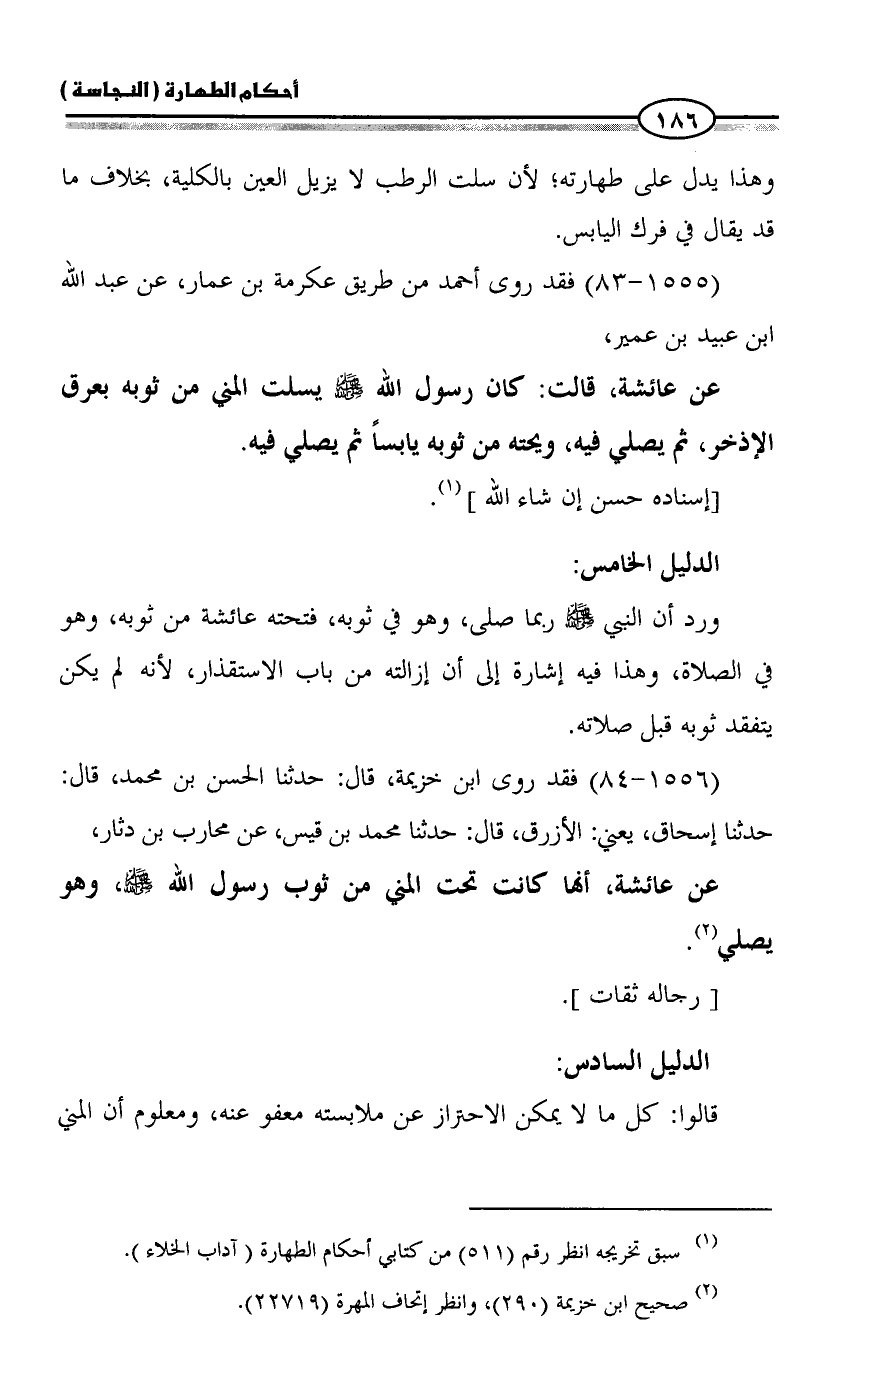 أحكام الطهارة (النجاسة)
١٨٦
وهذا يدل على طهارته؛ لأن سلت الرطب لا يزيل العين بالكلية، بخلاف ما
قد يقال في فرك اليابس.
(١٥٥٥-٨٣) فقد روى أحمد من طريق عكرمة بن عمار، عن عبد الله
ابن عبيد بن عمير،
عن عائشة، قالت: كان رسول الله ﷺ يسلت المني من ثوبه بعرق
الإذخر، ثم يصلي فيه، ويحته من ثوبه يابساً ثم يصلي فيه.
[إسناده حسن إن شاء الله ](١).
الدليل الخامس:
ورد أن النبي ﷺ ربما صلى، وهو في ثوبه، فتحته عائشة من ثوبه، وهو
في الصلاة، وهذا فيه إشارة إلى أن إزالته من باب الاستقذار، لأنه لم يكن
يتفقد ثوبه قبل صلاته.
(١٥٥٦-٨٤) فقد روى ابن خزيمة، قال: حدثنا الحسن بن محمد، قال:
حدثنا إسحاق، يعني: الأزرق، قال: حدثنا محمد بن قيس، عن محارب بن دثار،
عن عائشة، أنها كانت تحت المني من ثوب رسول الله ﷺ، وهو
يصلي(٢).
[ رجاله ثقات ].
الدليل السادس:
قالوا: كل ما لا يمكن الاحتراز عن ملابسته معفو عنه، ومعلوم أن المني
(١) سبق تخريجه انظر رقم (٥١١) من كتابي أحكام الطهارة ( آداب الخلاء ).
(٢) صحيح ابن خزيمة (٢٩٠)، وانظر إتحاف المهرة (٢٢٧١٩).